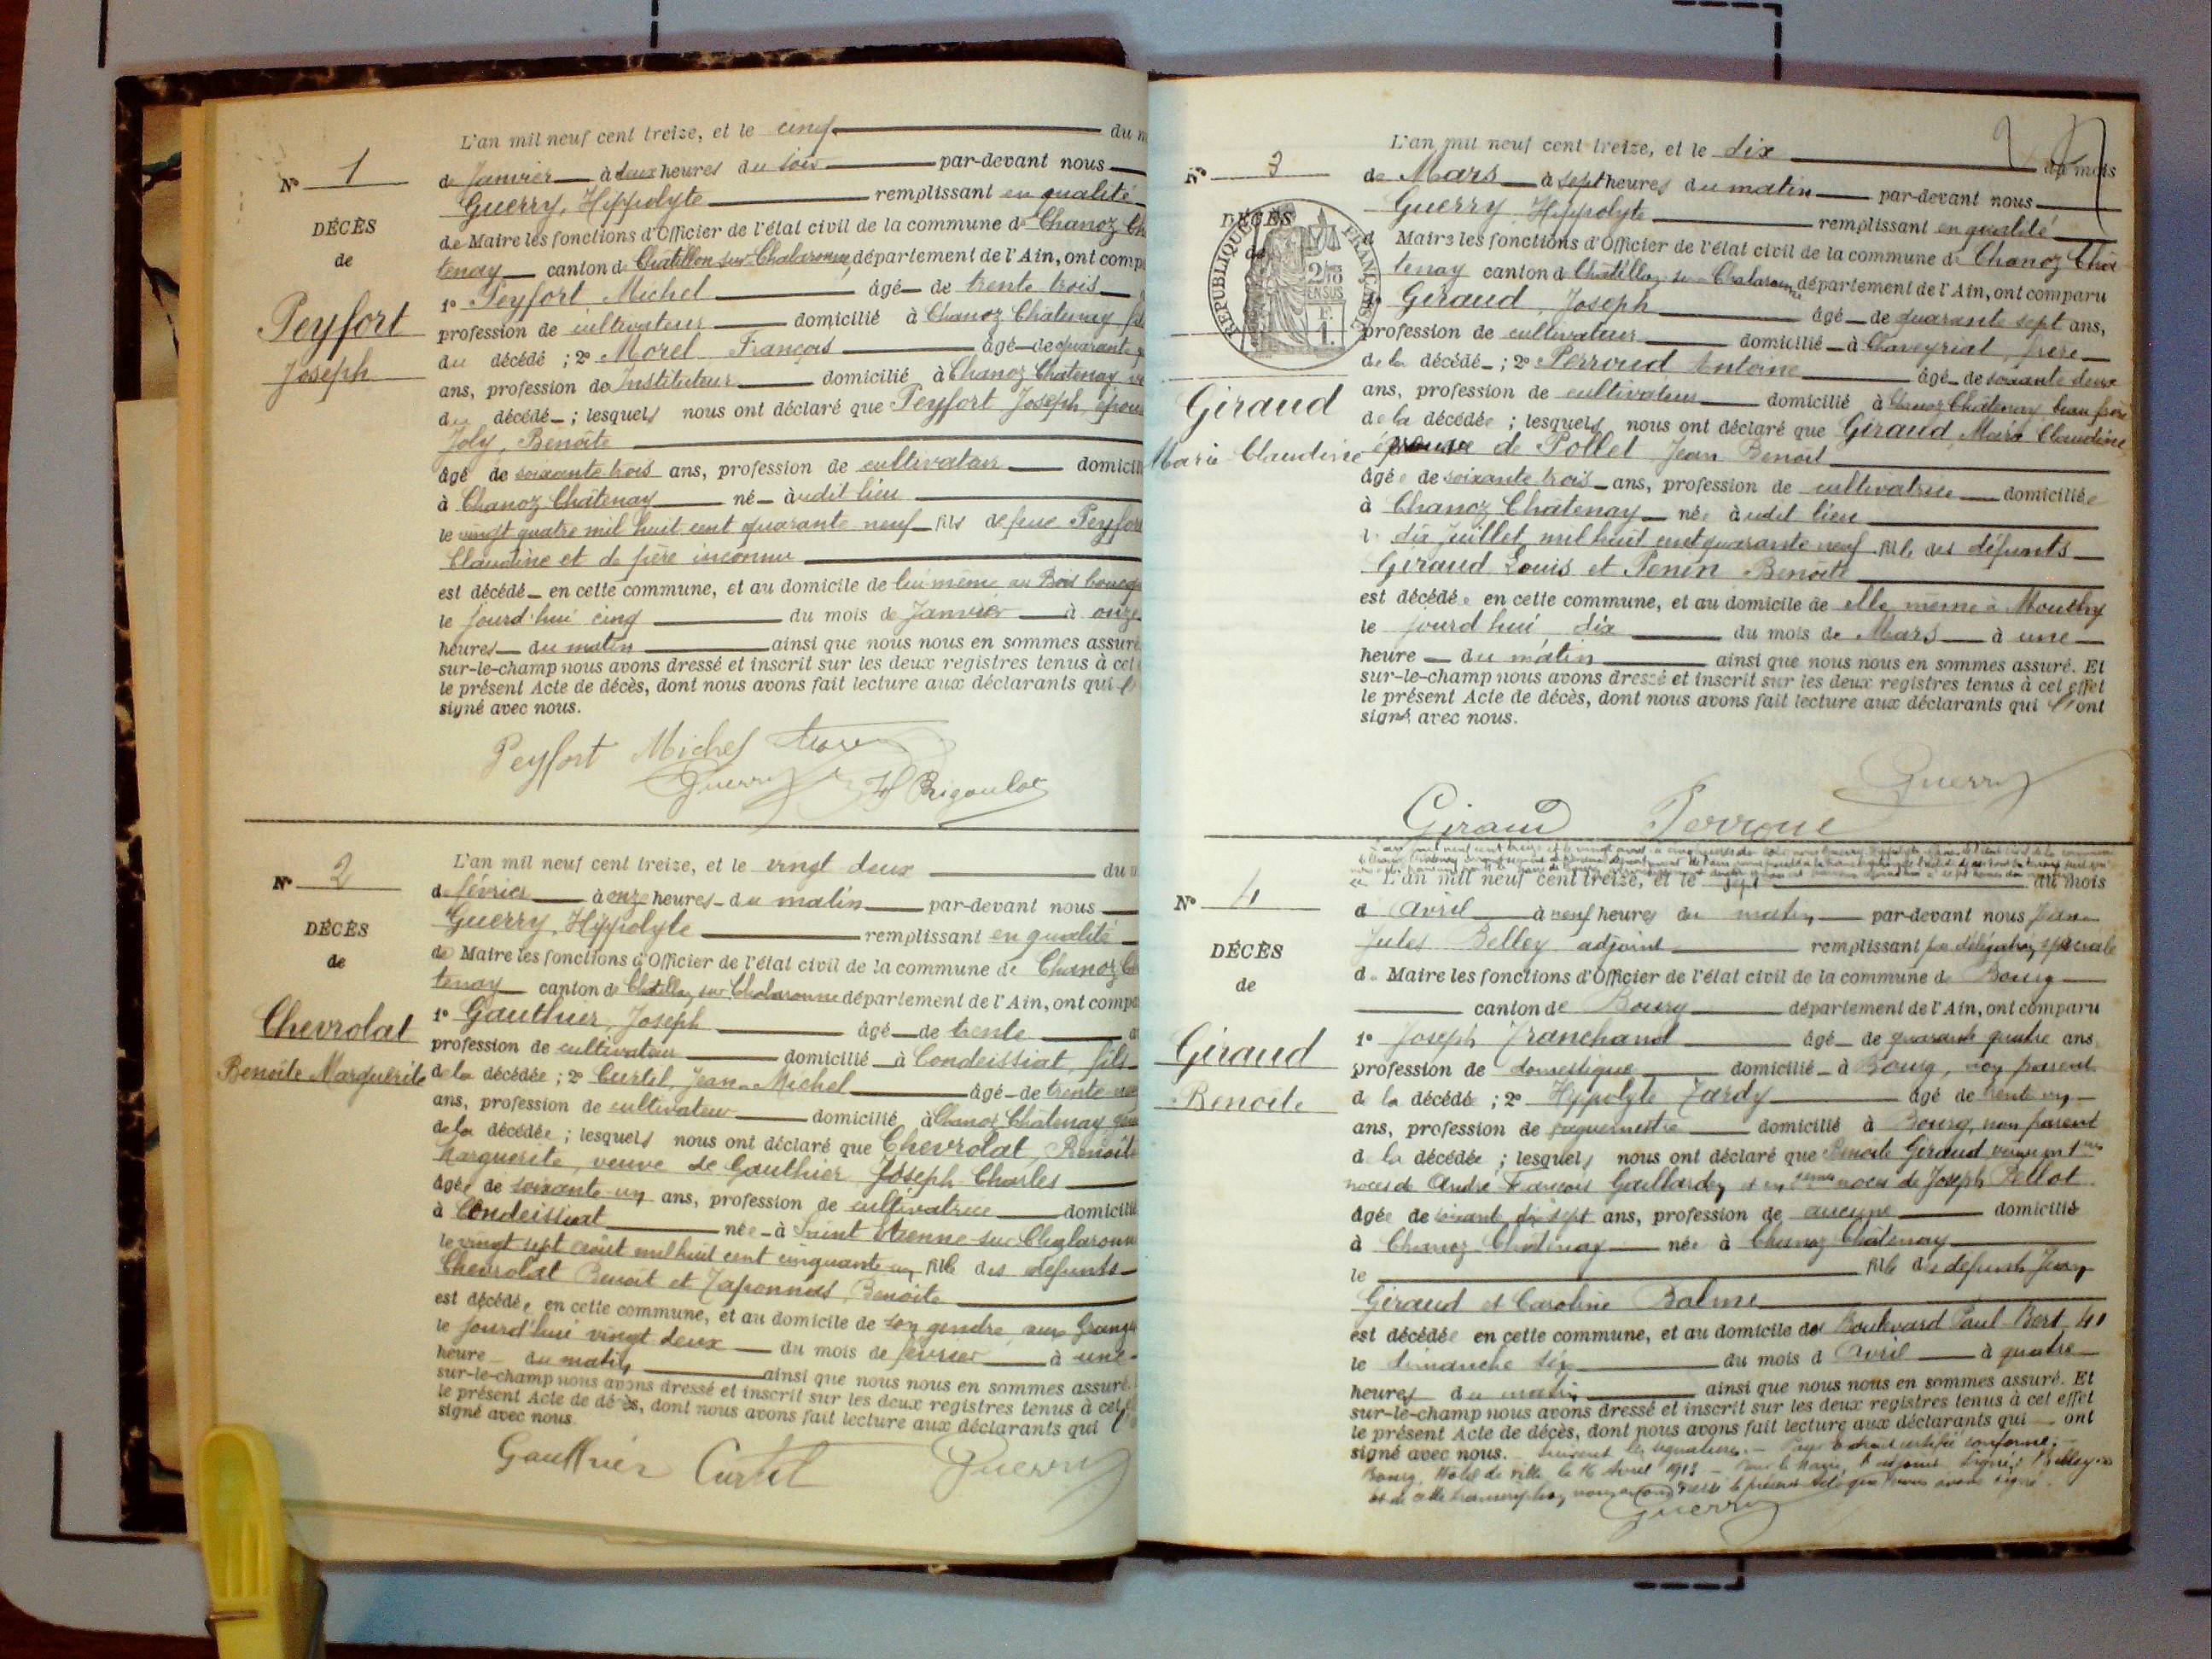 L'an mil neuf cent treize, et le cinq du m
de Janvier à deux heures du soir par-devant nous
Guerry, Hippolyte remplissant en qualité
de Maire les fonctions d'Officier de l'état civil de la commune de Chanoz Châ
tenay canton de Châtillon sur Chalaronne, département de l'Ain, ont comp
1° Peyfort Michel âgé de trente trois
profession de cultivateur domicilié à Chanoz Châtenay fils
du décédé ; 2° Morel François âgé de quarante
ans, profession de Instituteur domicilié à Chanoz Châtenay
du décédé ; lesquels nous ont déclaré que Peyfort Joseph, époux
Joly, Benoîte
âgé de soixante trois ans, profession de cultivateur domicili
à Chanoz Châtenay né à udit lieu
le vingt quatre mil huit cent quarante neuf fils de feue Peyfort
Claudine et de père inconnu
est décédé en cette commune, et au domicile de lui même au Bois
le jourd'hui cinq du mois de Janvier à onze
heures du matin ainsi que nous nous en sommes assuré
sur-le-champ nous avons dressé et inscrit sur les deux registres tenus à cet
le présent Acte de décès, dont nous avons fait lecture aux déclarants qui
signé avec nous.
N° 1
DÉCÈS
de
Peyfort
Joseph
Peyfort Michel Morel
Guerry H Brigoulot
L'an mil neuf cent treize, et le vingt deux du
de février à onze heures du matin par-devant nous
Guerry, Hippolyte remplissant en qualité
de Maire les fonctions d'Officier de l'état civil de la commune de Chanoz Châ
tenay canton de Châtillon sur Chalaronne département de l'Ain, ont compa
1° Gauthier, Joseph âgé de trente
profession de cultivateur domicilié à Condeissiat, fils
de la décédée ; 2° Curtil, Jean-Michel âgé de trente
ans, profession de cultivateur domicilié à Chanoz Châtenay
de la décédée ; lesquels nous ont déclaré que Chevrolat, Benoîte
Marguerite, veuve de Gauthier Joseph Charles
âgée de soixante un ans, profession de cultivatrice domicilié
à Condeissiat née à Saint Etienne sur Chalaronne
le vingt sept août mil huit cent cinquante un fille des défunts
Chevrolat Benoît et Taponnas, Benoîte
est décédée en cette commune, et au domicile de son gendre, aux Granges
le jourd'hui vingt deux du mois de février à une
heure du matin ainsi que nous nous en sommes assuré.
sur-le-champ nous avons dressé et inscrit sur les deux registres tenus à cet
le présent Acte de décès, dont nous avons fait lecture aux déclarants qui
signé avec nous.
N° 2
DÉCÈS
de
Chevrolat
Benoîte Marguerite
Gauthier Curtil Guerry
L'an mil neuf cent treize, et le dix du mois
de Mars à sept heures du matin par-devant nous
Guerry Hippolyte remplissant en qualité
d Maire les fonctions d'Officier de l'état civil de la commune de Chanoz Châ
tenay canton de Châtillon sur Chalaronne département de l'Ain, ont comparu
1° Giraud, Joseph âgé de quarante sept ans,
profession de cultivateur domicilié à Chaveyriat, frère
de la décédé ; 2° Perroud Antoine âgé de soixante deux
ans, profession de cultivateur domicilié à Chanoz Châtenay beau frère
de la décédée ; lesquels nous ont déclaré que Giraud, Marie Claudine
épouse de Pollet Jean Benoit
âgée de soixante trois ans, profession de cultivatrice domiciliée
à Chanoz Châtenay née à udit lieu
le dix Juillet mil huit cent quarante neuf fille des défunts
Giraud Louis et Penin Benoîte
est décédée en cette commune, et au domicile de elle même à Mouthy
le jourd'hui dix du mois de Mars à une
heure du matin ainsi que nous nous en sommes assuré. Et
sur-le-champ nous avons dressé et inscrit sur les deux registres tenus à cet effet
le présent Acte de décès, dont nous avons fait lecture aux déclarants qui l'ont
signé avec nous.
N° 3
DÉCÈS
de
RÉPUBLIQUE FRANÇAISE
2/10 EN SUS
F. 1.
Giraud
Marie Claudine
Guerry
Giraud Perroud
L'an mil neuf cent treize, et le sept du mois
d avril à neuf heures du matin par-devant nous Jean
Jules Belley adjoint remplissant par délégation spéciale
de Maire les fonctions d'Officier de l'état civil de la commune de Bourg
canton de Bourg département de l'Ain, ont comparu
1° Joseph Tranchand âgé de quarante quatre ans
profession de domestique domicilié à Bourg, non parent
de la décédée ; 2° Hyppolyte Tardy âgé de trente un
ans, profession de domicilié à Bourg, non parent
de la décédée ; lesquels nous ont déclaré que Benoîte Giraud,
noces de André François Gaillardon et en noces de Joseph Pellot
âgée de soixante dix sept ans, profession de aucune domicilié
à Chanoz Châtenay née à Chanoz Châtenay
le fille de défunts Jean
Giraud et Caroline Balme
est décédée en cette commune, et au domicile de Boulevard Paul Bert 41
le dimanche six du mois d avril à quatre
heures du matin ainsi que nous nous en sommes assuré. Et
sur-le-champ nous avons dressé et inscrit sur les deux registres tenus à cet effet
le présent Acte de décès, dont nous avons fait lecture aux déclarants qui ont
signé avec nous. Suivent les signatures. Pour extrait certifié conforme :
Bourg, Hôtel de Ville le 16 Avril 1913 - Pour le Maire, l'adjoint Signé : Belley
et de cette transcription nous avons dressé le présent acte que nous avons signé.
N° 4
DÉCÈS
de
Giraud
Benoîte
Guerry